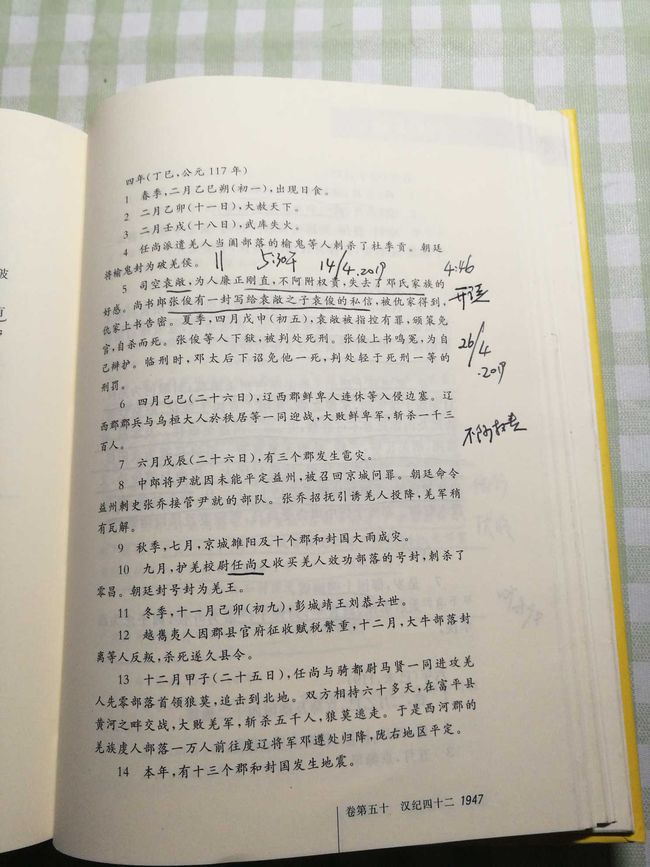 四年(丁巳,公元 117 年)
1 春季,二月乙巳朔(初一),出现日食。
2 二月乙卯(十一日),大赦天下。
3 二月壬戌(十八日),武库失火。
4 任尚派遣羌人当阗部落的榆鬼等人刺杀了杜季贡。朝廷
将榆鬼封为破羌侯。
11 5:30 14/4.2019 4:46
5 司空袁敞,为人廉正刚直,不阿附权贵,失去了邓氏家族的
好感。尚书郎张俊有一封写给袁敞之子袁俊的私信,被仇家得到,
仇家上书告密。夏季,四月戊申(初五),袁敞被指控有罪,颁策免
官,自杀而死。张俊等人下狱,被判处死刑。张俊上书鸣冤,为自
26/4
.2019
己辩护。临刑时,邓太后下诏免他一死,判处轻于死刑一等的
刑罚。
6 四月己巳(二十六日),辽西郡鲜卑人连休等入侵边塞。辽
西郡郡兵与乌桓大人於秩居等一同迎战,大败鲜卑军,斩杀一千三
百人。
不阿权贵
7 六月戊辰(二十六日),有三个郡发生雹灾。
8 中郎将尹就因未能平定益州,被召回京城问罪。朝廷命令
益州刺史张乔接管尹就的部队。张乔招抚引诱羌人投降,羌军稍
有瓦解。
9 秋季,七月,京城雒阳及十个郡和封国大雨成灾。
10 九月,护羌校尉任尚又收买羌人效功部落的号封,刺杀了
零昌。朝廷封号封为羌王。
11 冬季,十一月己卯(初九),彭城靖王刘恭去世。
12 越巂夷人因郡县官府征收赋税繁重,十二月,大牛部落封
离等人反叛,杀死遂久县令。
13 十二月甲子(二十五日),任尚与骑都尉马贤一同进攻羌
人先零部落首领狼莫,追击到北地。双方相持六十多天,在富平县
黄河之畔交战,大败羌军,斩杀五千人,狼莫逃走。于是西河郡的
羌族虔人部落一万人前往度辽将军邓遵处归降,陇右地区平定。
14 本年,有十三个郡和封国发生地震。
卷第五十 汉纪四十二 1947